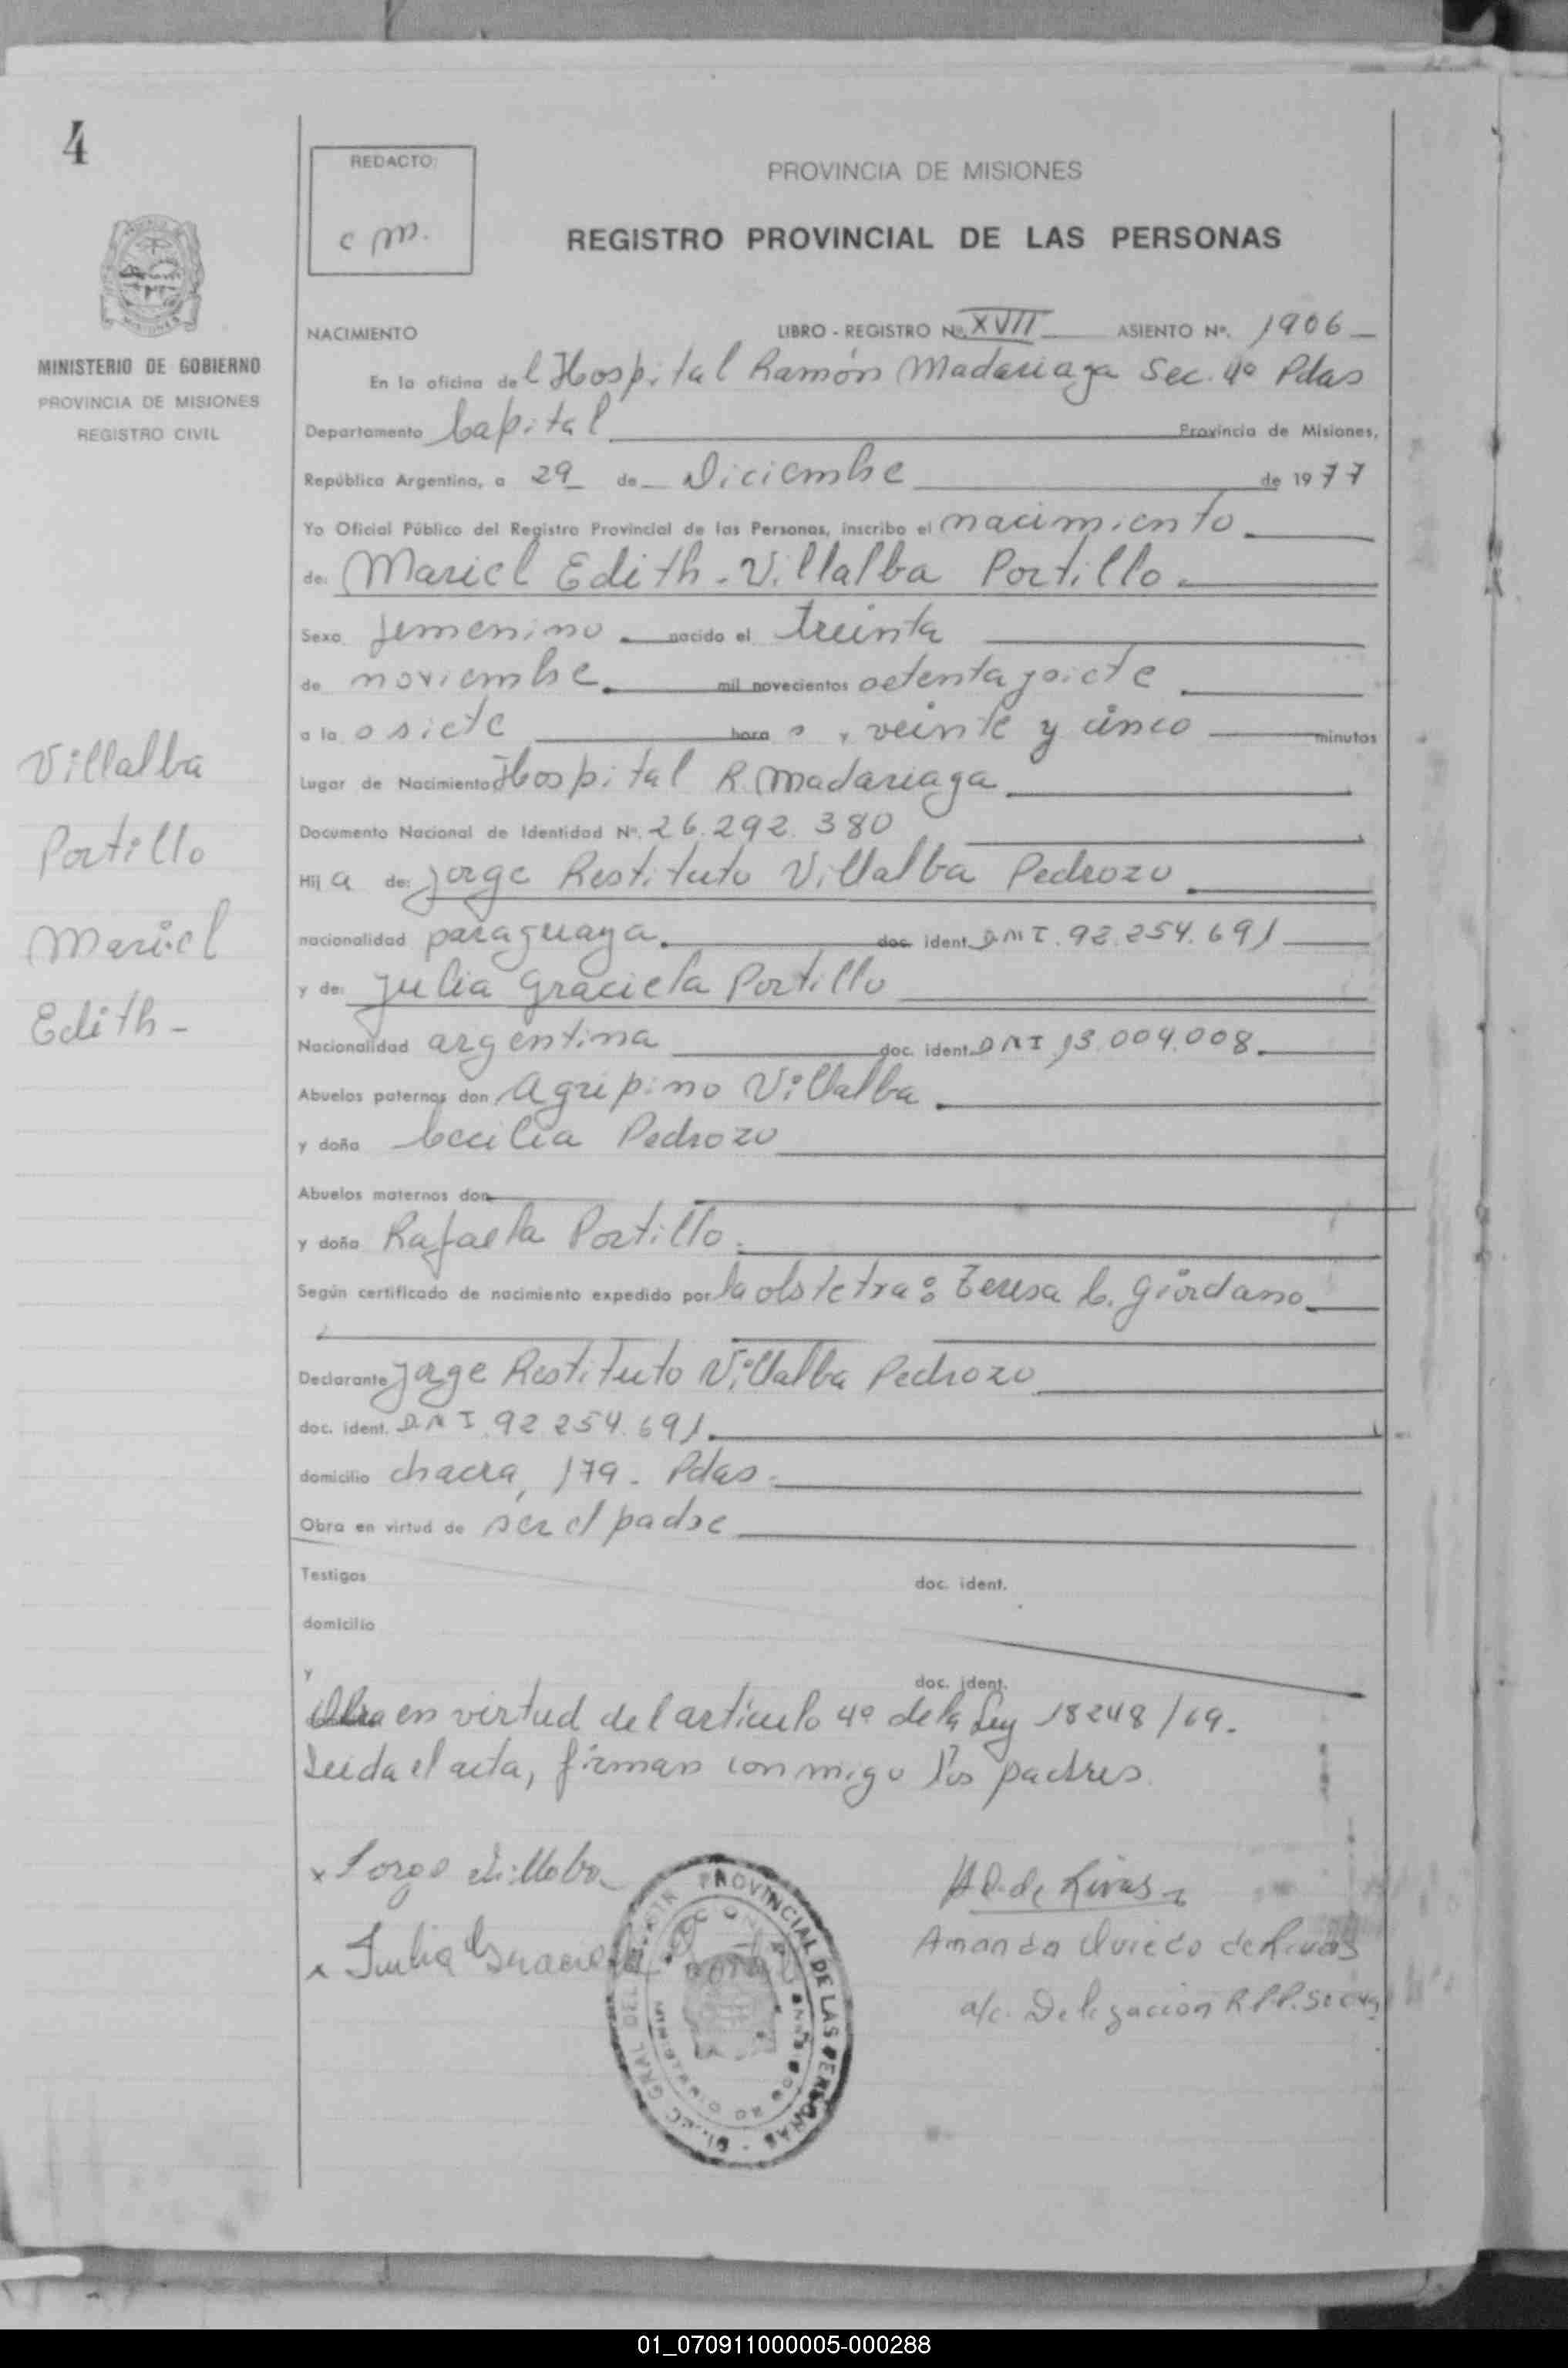 4
REDACTO:
c m.
PROVINCIA DE MISIONES
REGISTRO PROVINCIAL DE LAS PERSONAS
MINISTERIO DE GOBIERNO
PROVINCIA DE MISIONES
REGISTRO CIVIL
NACIMIENTO LIBRO - REGISTRO Nº. XVII ASIENTO Nº. 1906
En la oficina del Hospital Ramón Madariaga Sec. 4º Pdas
Departamento Capital Provincia de Misiones,
República Argentina, a 29 de Diciembre de 1977
Yo Oficial Público del Registro Provincial de las Personas, inscribo el nacimiento
de: Mariel Edith - Villalba Portillo.
Sexo femenino nacido el treinta
de noviembre. mil novecientos setenta y siete
a la s siete hora s , veinte y cinco minutos
Lugar de Nacimiento Hospital R. Madariaga
Documento Nacional de Identidad Nº. 26.292.380
Hij a de: Jorge Restituto Villalba Pedrozo
nacionalidad paraguaya. doc. ident. DNI. 92.254.691
y de: Julia Graciela Portillo
Nacionalidad argentina doc. ident. DNI 13.004.008
Abuelos paternos don Agripino Villalba
y doña Cecilia Pedrozo
Abuelos maternos don
y doña Rafaela Portillo.
Según certificado de nacimiento expedido por la obstetra: Teresa C. Giordano
Declarante Jorge Restituto Villalba Pedrozo
doc. ident. DNI 92 254.691.
domicilio chacra, 179 - Pdas.
Obra en virtud de ser el padre
Testigos doc. ident.
domicilio
y doc. ident.
Obra en virtud del artículo 4º de la Ley 18248/69.
Leida el acta, firman conmigo los padres.
Villalba
Portillo
Mariel
Edith -
x Jorge Villalba
x Julia Graciela Portillo
A O. de Rivas
Amanda Oviedo de Rivas
a/c. Delegación R.P.P. Sec 4ta
PROVINCIAL DE LAS PERSONAS
01_070911000005-000288